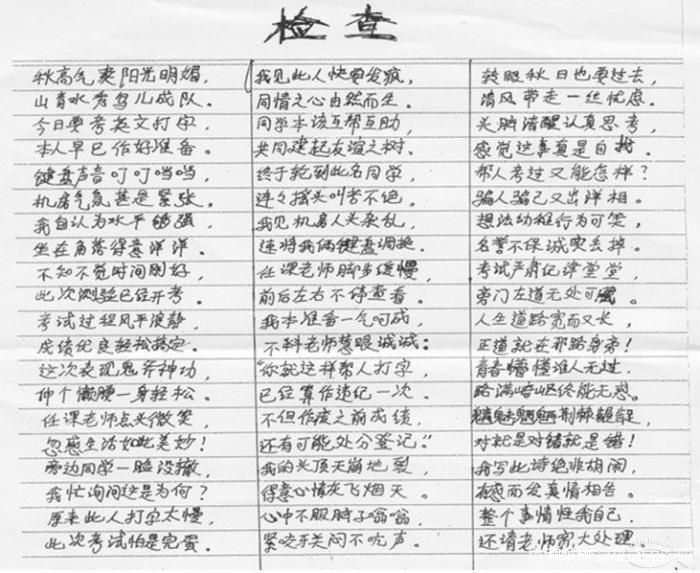 检查
秋高气爽阳光明媚，
山青水秀鸟儿成队。
今日要考英文打字，
本人早已作好准备。
键盘声音叮叮当当，
机房气氛甚是紧张。
我自认为水平够强，
坐在角落得意洋洋。
不知不觉时间刚好，
此次测验已经开考。
考试过程风平浪静，
成绩优良轻松搞定。
这次表现鬼斧神功，
伸个懒腰一身轻松。
任课老师点头微笑，
忽感生活如此美妙！
旁边同学一脸没辙，
我忙询问这是为何？
原来此人打字太慢，
此次考试怕是完蛋。
我见此人快要发疯，
同情之心由然而生。
同学本该互帮互助，
共同建起友谊之树。
终于轮到此名同学，
连连摇头叫苦不绝。
我见机房人头杂乱，
速将我俩键盘调换。
任课老师脚步缓慢，
前后左右不停查看。
我本准备一气呵成，
不料老师慧眼诚诚：
“你就这样帮人打字，
已经算作违纪一次。
不但作废之前成绩，
还有可能处分登记。”
我的头顶天崩地裂，
得意心情灰飞烟灭。
心中不服脖子嗡嗡，
紧咬牙关闷不吭声。
转眼秋日也要过去，
清风带走一丝忧虑。
头脑清醒认真思考，
感觉这事真是白搭。
帮人考过又能怎样？
骗人骗己又出洋相。
想法幼稚行为可笑，
名誉不保诚实丢掉。
考试严肃纪律堂堂，
旁门左道无处可藏。
人生道路宽而又长，
正道就在那路身旁！
青春懵懂谁人无过，
路满崎岖终能无惑。
魑魅魍魉荆棘
对就是对错就是错！
我写此诗绝非胡闹，
有感而发真情相告。
整个事情怪我自己，
还请老师宽大处理。